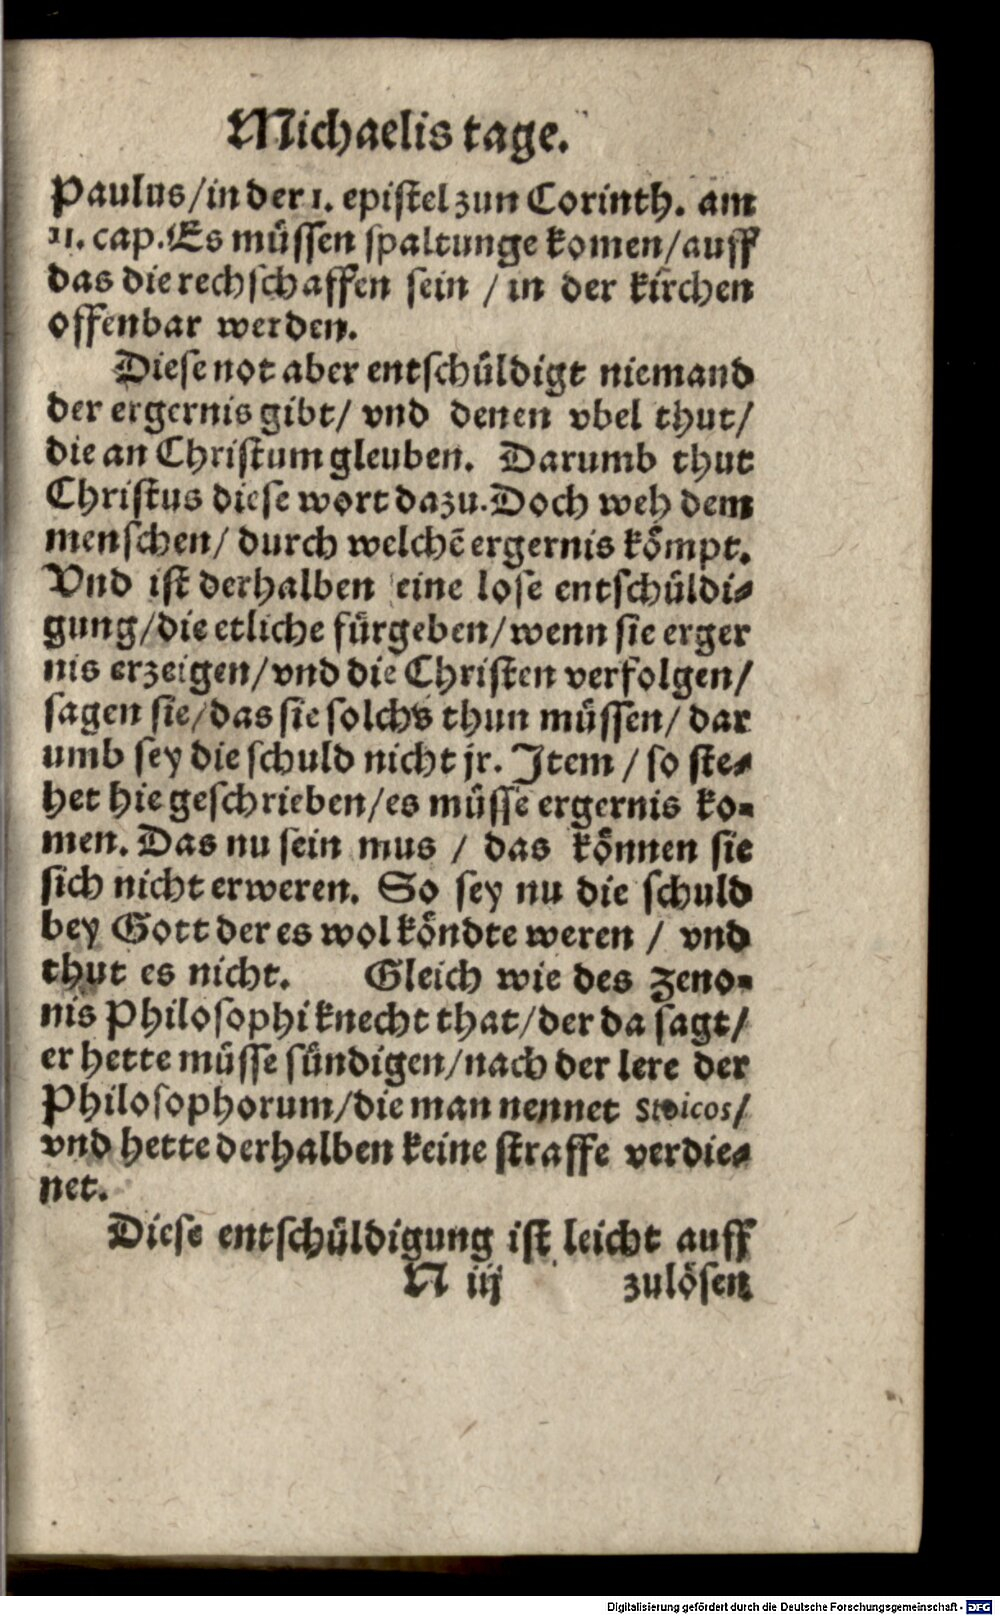 Michaelis tage.
Paulus/in der 1. epistel zun Corinth. am
11. cap. Es müssen spaltunge komen/auff
das die rechschaffen sein / in der kirchen
offenbar werden.
Diese not aber entschüldigt niemand
der ergernis gibt/ vnd denen vbel thut/
die an Christum gleuben. Darumb thut
Christus diese wort dazu. Doch weh dem
menschen/ durch welchē ergernis kömpt.
Vnd ist derhalben eine lose entschüldi-
gung/die etliche fürgeben/wenn sie erger
nis erzeigen/vnd die Christen verfolgen/
sagen sie/das sie solchs thun müssen/ dar
umb sey die schuld nicht jr. Item / so ste-
het hie geschrieben/es müsse ergernis ko-
men. Das nu sein mus / das können sie
sich nicht erweren. So sey nu die schuld
bey Gott der es wol köndte weren / vnd
thut es nicht. Gleich wie des Zeno-
nis Philosophi knecht that/der da sagt/
er hette müsse sündigen/nach der lere der
Philosophorum/die man nennet Stoicos/
vnd hette derhalben keine straffe verdie-
net.
Diese entschüldigung ist leicht auff
N iij zulösen
Digitalisierung gefördert durch die Deutsche Forschungsgemeinschaft - DFG